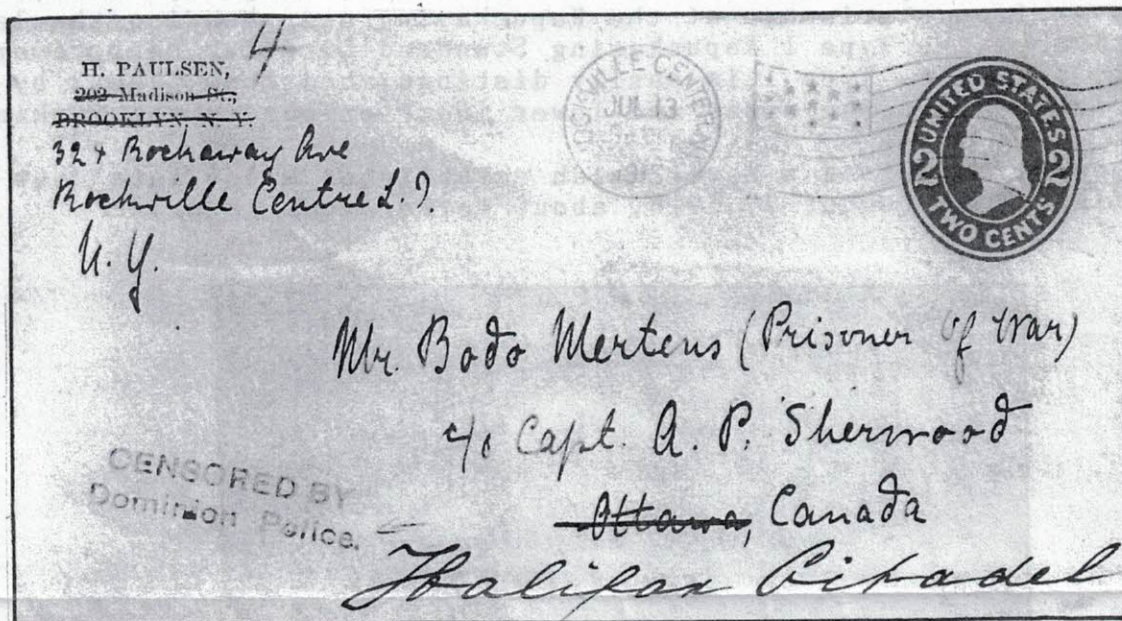 4
H. PAULSEN,
202 Madison St.,
BROOKLYN N. Y.
324 Rockaway Ave
Rockville Centre L. I.
N. Y.
ROCKVILLE CENTER, N
JUL 13
UNITED STATES
2 2
TWO CENTS
Mr. Bodo Mertens (Prisoner of War)
c/o Capt. A. P. Sherwood
Ottawa, Canada
Halifax Citadel
CENSORED BY
Dominion Police.